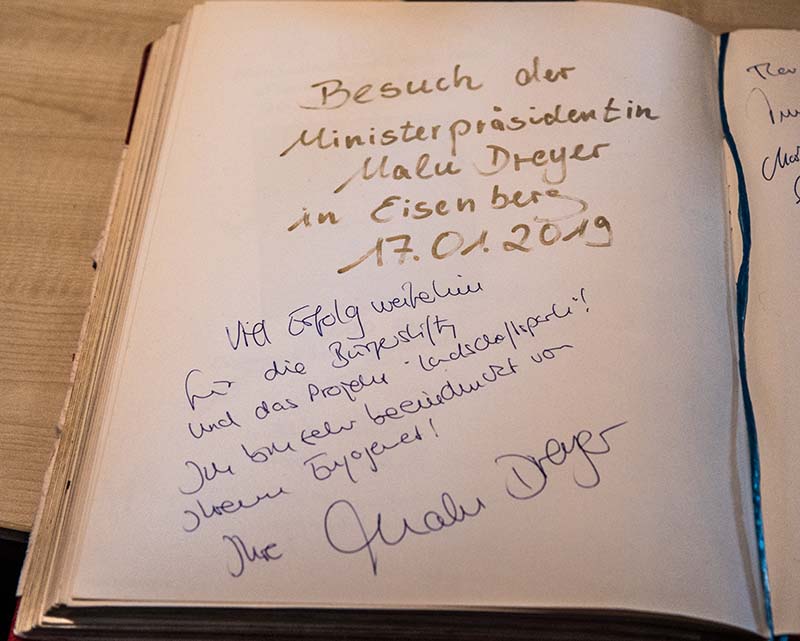 Besuch der
Ministerpräsidentin
Malu Dreyer
in Eisenberg
17.01.2019
Viel Erfolg weiterhin
für die Bürgerstiftg
und das Projekt "Landschaftspark"!
Ich bin sehr beeindruckt von
Ihrem Engagement!
Ihre Malu Dreyer